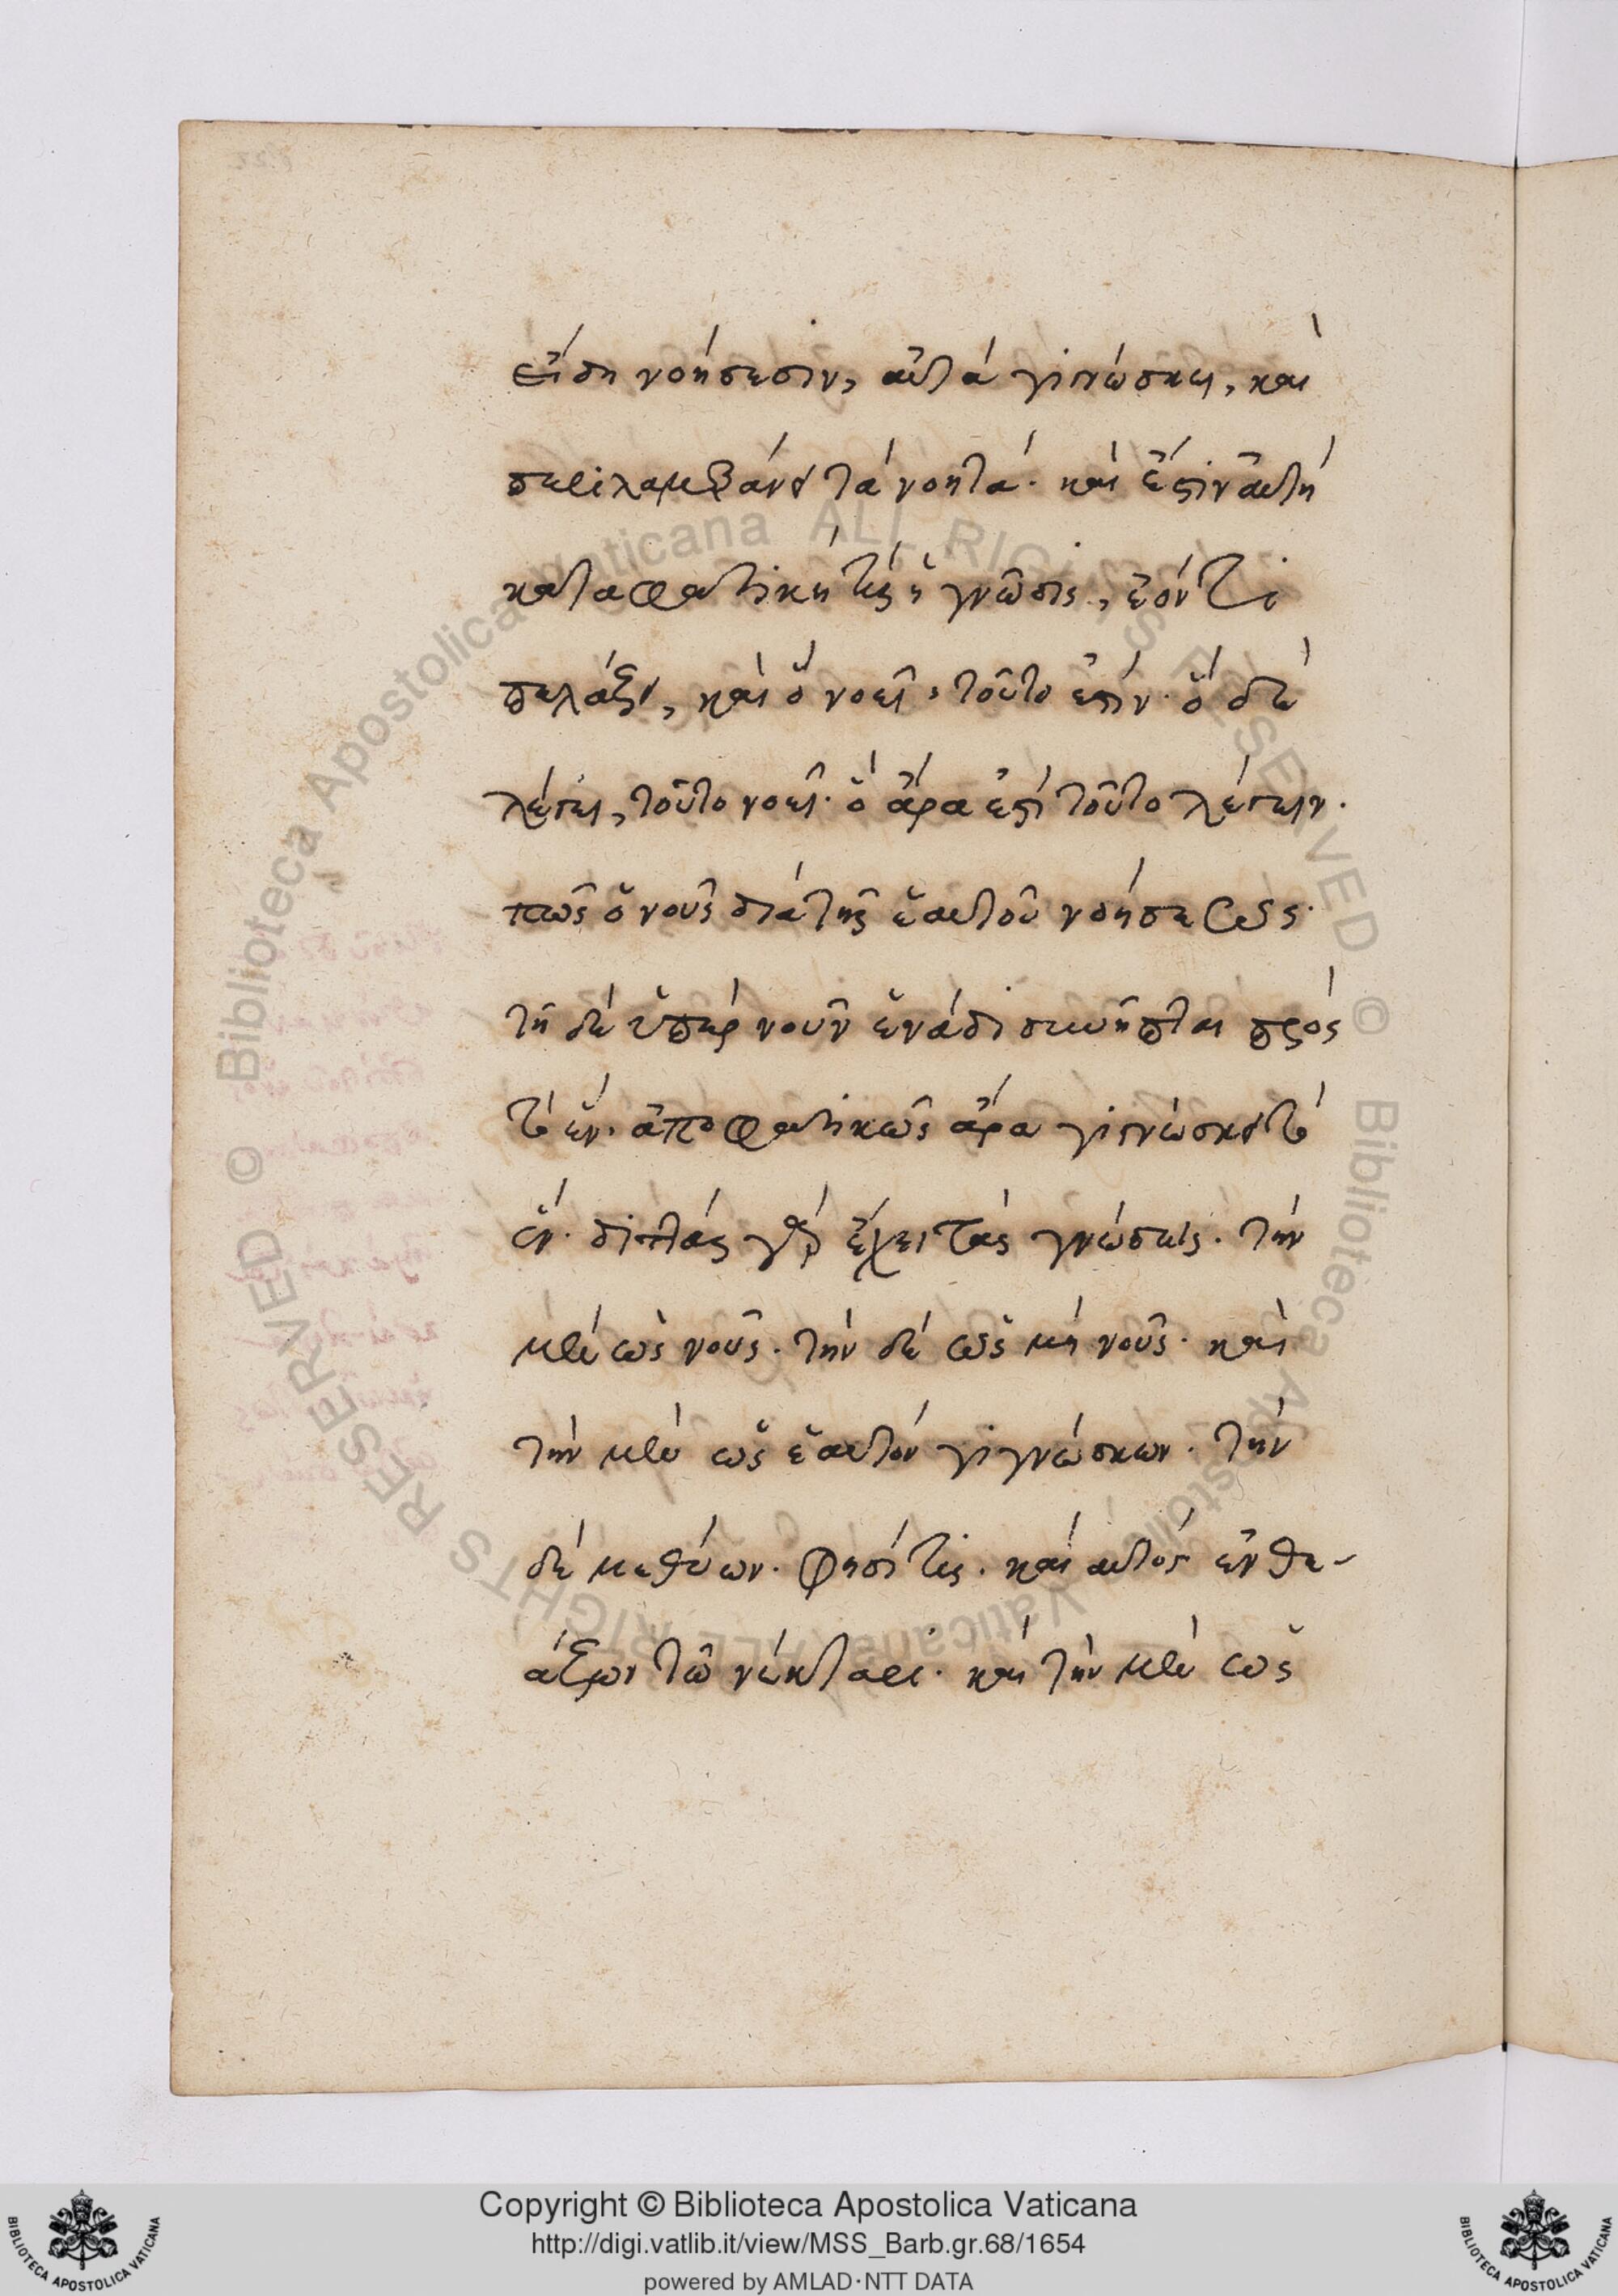 εἴδη νοήσεσιν, αὐτὰ γινώσκει, καὶ
περιλαμβάνει τὰ νοητά· καὶ ἔστιν αὐτὴ
καταφατική τις ἡ γνῶσις,
καὶ ὃ νοεῖ, τοῦτο ἐστίν· ὃ δὲ
λέγει, τοῦτο νοεῖ· ὃ ἄρα ἐστὶ τοῦτο λέγειν.
πως ὁ νοῦς διὰ τῆς ἑαυτοῦ νοήσεως·
τῇ δὲ ὑπὲρ νοῦν ἑνάδι συνῆπται πρὸς
τὸ ἕν· ἀποφατικῶς ἄρα γινώσκει τὸ
ἕν· διπλὰς γὰρ ἔχει τὰς γνώσεις· τὴν
μὲν ὡς νοῦς· τὴν δὲ ὡς μὴ νοῦς· καὶ
τὴν μὲν ὡς ἑαυτὸν γιγνώσκων· τὴν
δὲ μεθύων· φησί τις· καὶ αὐτὸς ἐνθε-
άζων τῷ νέκταρι· καὶ τὴν μὲν ὡς
Copyright © Biblioteca Apostolica Vaticana
http://digi.vatlib.it/view/MSS_Barb.gr.68/1654
powered by AMLAD·NTT DATA
BIBLIOTECA APOSTOLICA VATICANA
BIBLIOTECA APOSTOLICA VATICANA
© Biblioteca Apostolica Vaticana ALL RIGHTS RESERVED © Biblioteca Apostolica Vaticana ALL RIGHTS RESERVED